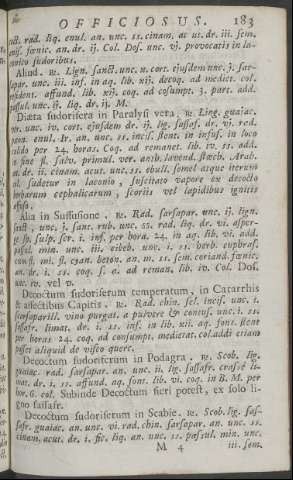 OFFICIOSUS. 183
rad. liq. enul. an. unc. ss. cinam, at. ut. dr. iii. sem.
fœnic. an. dr. ij. Col. Dos. unc. vj. provocatis in la-
conico sudoribus.
Aliud. ℞. Lign. sanct. unc. ii. cort. ejusdem unc. j. sar-
sapar. unc. iii. inf. in aq. lib. xij. decoq. ad mediet. col.
affund. lib. xij. coq. ad cosumpt. 3. part. add.
unc. ij. liq. dr. ij. M.
Diæta sudorifera in Paralysi vera, ℞. Ling. guaiac.
unc. iv. cort. ejusdem dr. ij. lig. sassaf. dr. vi. rad.
enul. Ir. an. unc. ss. incis. stent in infus. in loco
calido per 24. horas. Coq. ad remanet. lib. iv. ss. add.
sine fl. salv. primul. ver. anth. lavend. stœch. Arab.
an. dr. ii. cinam. acut. unc. ss. ebull. somel atque iterum
sudetur in laconio, suscitato vapore ex decocto
herbarum cephalicarum, scoriis vel lapidibus ignitis
Alia in Suffusione. ℞. Rad. sarsapar. unc. ij. lign.
sanct, unc. j. sant. rub. unc. ss. rad. liq. dr. vi. asper.
dr. i. inf. per hora. 24. in aq. lib. vii. add.
min. unc. iii. vieb. unc. i. ss. herb. euphras.
mi. fl. cyan. beton. an. m. ss. sem. coriand. fœnic.
an. dr. i. ss. coq. s. a. ad reman. lib. iv. Col. Dos.
unc. iv. vel v.
Decoctum sudoriferum temperatum, in Catarrhis
& affectibus Capitis. ℞. Rad. chin. sel. incis. unc. i.
sarsaparill. vino purgat. a pulvere & contus. unc. i. ss.
sassafr. limat. dr. i. ss. inf. in lib. xii. aq. font. stent
per horas 24. coq. ad consumpt. medietat. col. addi etiam
posset aliquid de visco querc.
Decoctum sudoriferum in Podagra. ℞. Scob. lig.
guaiac rad. sarsapar. an. unc. ii. lig. sassafr. crassè li-
mat. dr. i. ss. affund. aq. font. lib. vi. coq. in B. M. per
hor. 6. col. Subinde Decoctum fieri potest, ex solo li-
gno sassafr.
Decoctum sudoriferum in Scabie. ℞. Scob. lig. sas-
safr. guaiac. an. unc. vi. rad. chin. sarsapar. an. unc. ss.
cinam. acut. dr. i. sic. liq. an. unc. ss. passul. min. unc.
M 4 iii. sem.